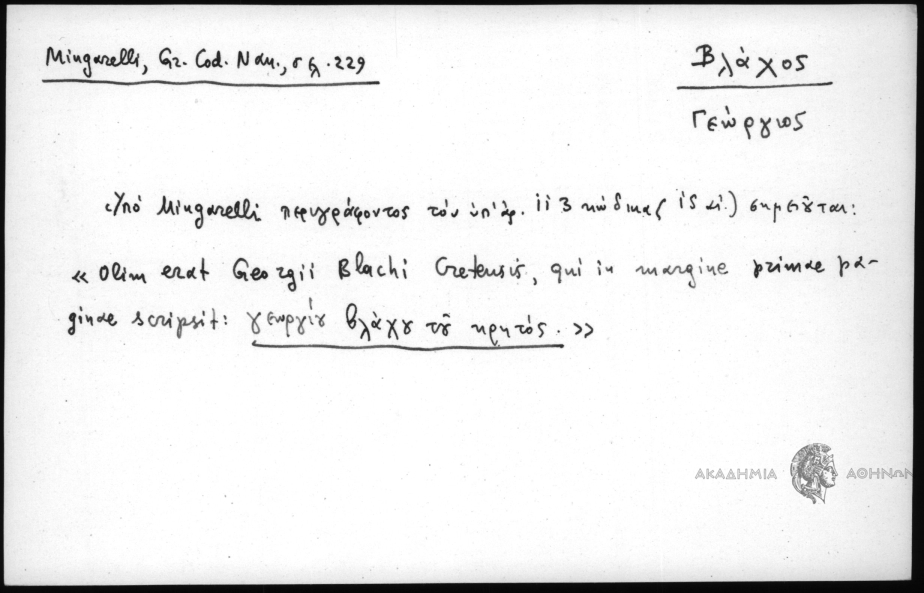 Mingarelli, Gr. Cod. Nan., σελ. 229
Βλάχος
Γεώργιος
Ὑπό Mingarelli περιγράφοντος τόν ὑπ' ἀρ. 113 κώδικα (15 αἰ.) σημειοῦται:
« Olim erat Georgii Blachi Cretensis, qui in margine primae pa-
ginae scripsit: γεωργίου βλάχου τοῦ κρητός. »
ΑΚΑΔΗΜΙΑ ΑΘΗΝΩΝ